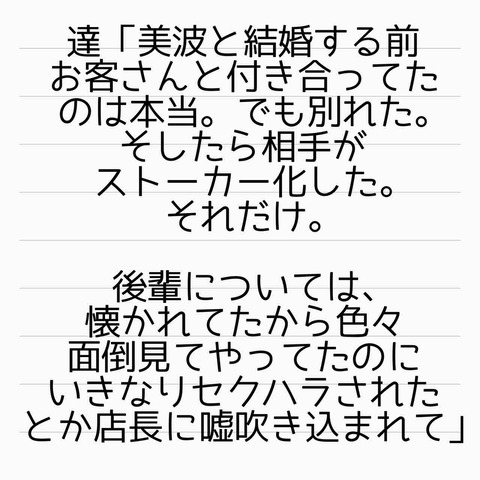 達「美波と結婚する前
お客さんと付き合ってた
のは本当。でも別れた。
そしたら相手が
ストーカー化した。
それだけ。
後輩については、
懐かれてたから色々
面倒見てやってたのに
いきなりセクハラされた
とか店長に嘘吹き込まれて」